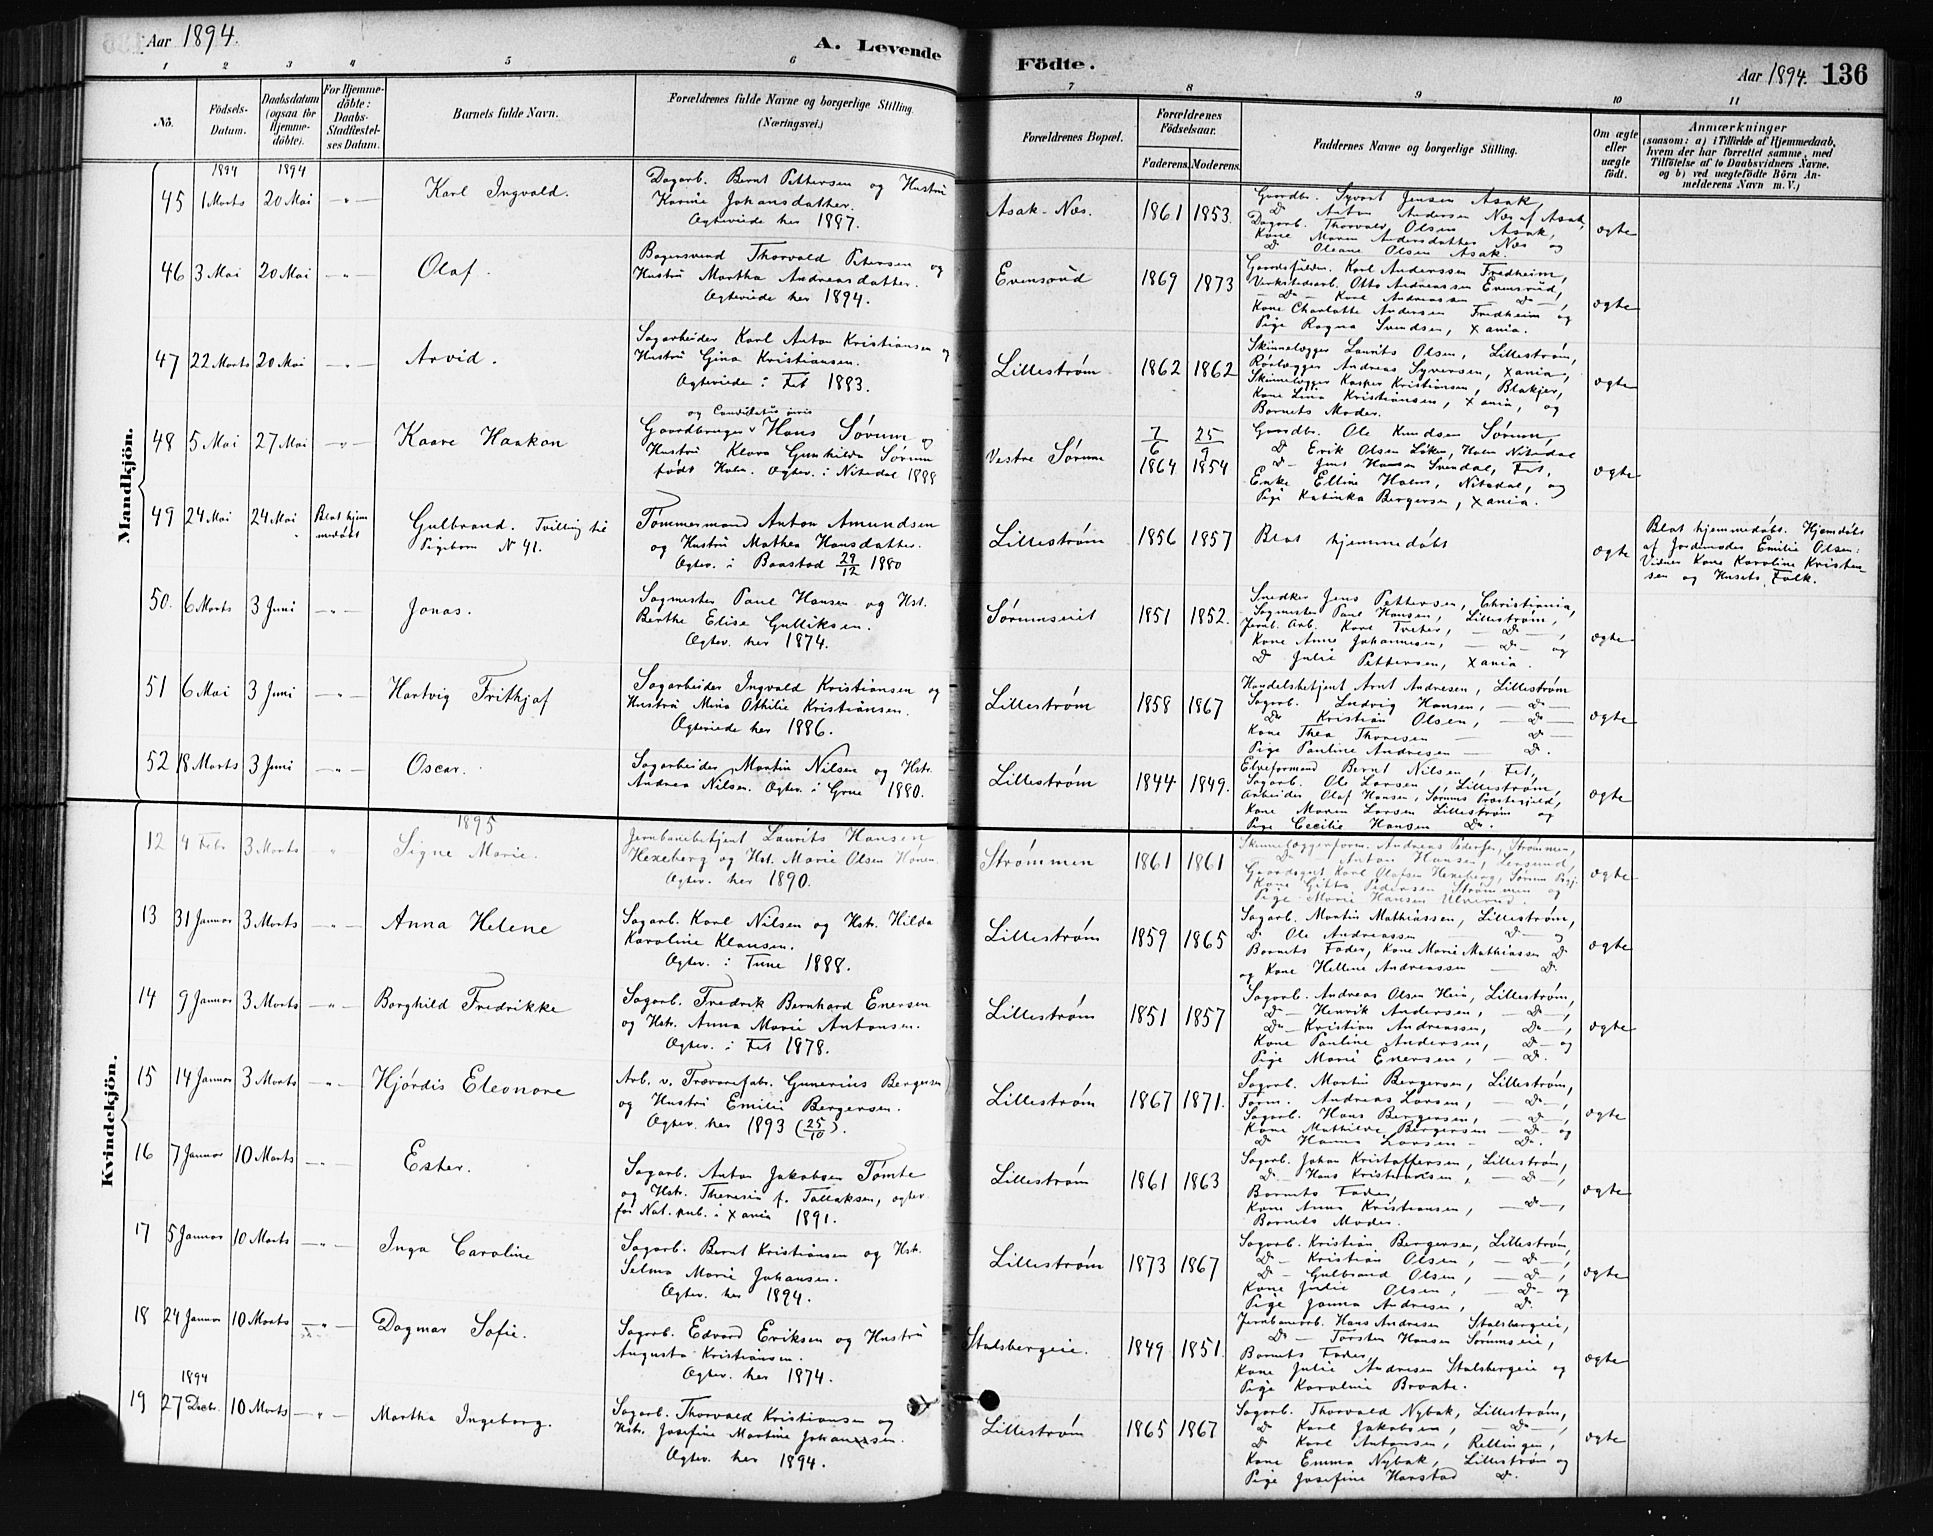 Aar 1894.
A. Levende Födte.
Aar 1894. 136
1 2 3 4 5 6 7 8 9 10 11
No.
Födsels-Datum.
Daabsdatum (ogsaa for Hjemme-döbte).
For Hjemme-döbte: Daabs-Stadfæstel-ses Datum.
Barnets fulde Navn.
Forældrenes fulde Navne og borgerlige Stilling.
(Næringsvei.)
Forældrenes Bopæl.
Forældrenes Födselsaar.
Faderens. Moderens.
Faddernes Navne og borgerlige Stilling.
Om ægte eller uægte födt.
Anmærkninger
(saasom: a) i Tilfælde af Hjemmedaab,
hvem der har forrettet samme, med
Tilföielse af to Daabsvidners Navne.
og b) ved uægtefödte Börn An-
melderens Navn m. V.)
Mandkjön.
1894 1894
45 1 Marts 20 Mai — " — Karl Ingvald.
Dagarb. Bernt Pettersen og Hustru
Karine Johansdatter.
Ægteviede her 1887.
Asak-Næs. 1861 1853.
Gaardbr. Syvert Jensen Asak,
D Anton Andersen Næs af Asak,
Dagarb. Thorvald Olsen Asak,
Kone Maren Andersdatter Næs og
D Oleane Olsen Asak.
ægte
46 3 Mai 20 Mai — " — Olaf.
Bagersvend Thorvald Petersen og
Hustru Martha Andreasdatter.
Ægteviede her 1894.
Evensrud 1869 1873
Karl Anderssen Fredheim,
Verkstedarb. Otto Andreassen Evensrud,
— D — Kone Andreassen — D —,
Kone Charlotte Andersen Fredheim og
Pige Ragna Svendsen, Xania.
ægte
47 22 Marts 20 Mai — " — Arvid.
Sagarbeider Karl Anton Kristiansen og
Hustru Gina Kristiansen.
Ægteviede i Fet 1883.
Lillestrøm 1862 1862
Skinnelægger Laurits Olsen, Lillestrøm,
Rørlægger Andreas Syversen, Xania,
Skinnelægger Kasper Kristiansen, Blakjer,
Kone Lina Kristiansen, Xania, og
Barnets Moder.
ægte
48 5 Mai 27 Mai — " — Kaare Haakon
og Candidatus juris
Gaardbruger Hans Sørum og
Hustru Klara Gunhilda Sørum
født Holm. Ægtev. i Nitedal 1888
Vestre Sørum 7/6 1864 25/9 1854
Gaardbr. Ole Knudsen Sørum,
D Erik Olsen Løken, Holm Nitedal
D — Jens Hansen Svendal, Fet,
Enke Elline Holm, Nitedal, og
Pige Katinka Bergersen, Xania.
ægte
49 24 Mai 24 Mai Blot hjemmedøbt
Gulbrand. Tvilling til
Pigebarn N 41.
Tømmermand Anton Amundsen
og Hustru Mathea Hansdatter.
Ægtev. i Baastad 29/12 1880
Lillestrøm 1856 1857 Blot hjemmedøbt ægte
Blot hjemmedøbt. Hjemdøbt
af Jordemoder Emilie Olsen:
Vidner Kone Karoline Kristen-
sen og Husets Folk.
50. 6 Marts 3 Juni — " — Jonas.
Sagmester Paul Hansen og Hst.
Berthe Elise Gulliksen.
Ægtev. her 1874.
Sørumseiet 1851 1852.
Snedker Jens Pettersen, Christiania,
Sagmester Paul Hansen, Lillestrøm,
Jernb. Arb. Kare — D —,
Kone Anne Johannesen, — D — og
D Julie Pettersen, Xania.
ægte
51 6 Mai 3 Juni — " — Hartvig Frithjof
Sagarbeider Ingvald Kristiansen og
Hustru Mina Othilie Kristiansen.
Ægteviede her 1886.
Lillestrøm 1858 1867
Handelsbetjent Arnt Andresen, Lillestrøm
Sagarb. Ludvig Hansen, — D —
D Kristian Olsen, — D —
Kone Thea Thoresen — D —
Pige Pauline Andresen — D.
ægte
52 18 Marts 3 Juni — " — Oscar.
Sagarbeider Martin Nilsen og Hst.
Andrea Nilsen. Ægtev. i Grue 1880.
Lillestrøm 1844 1849.
Elveformand Bernt Nilsen, Fet,
Sagarb. Ole Larsen, Lillestrøm,
Arbeider Olaf Hansen, Sørums Præstegjeld,
Kone Maren Larsen Lillestrøm og
Pige Cecilie Hansen D.
ægte
Kvindekjön.
1895
12 4 Febr 3 Marts " Signe Marie.
Jernbanebetjent Laurits Hansen
Hexeberg og Hst. Marie Olsen
Ægtev. her 1890.
Strømmen 1861 1861
Skinnelæggerform. Andreas Pedersen, Strømmen,
D Anton Hansen, Lersund,
Gaardsgut Karl Olafsen Hexeberg, Sørum
Kone Gitta Pedersen Strømmen og
Pige Marie Hansen Ulverud.
ægte
13 31 Januar 3 Marts — " — Anna Helene
Sagarb. Karl Nilsen og Hst. Hilda
Karoline Klausen.
Ægtev. i Tune 1888.
Lillestrøm 1859 1865
Sagarb. Martin Mathiassen, Lillestrøm,
D Ole Andreassen — D — og
Barnets Fader, Kone Marie Mathiassen D
og Kone Hellene Andreassen — D.
ægte
14 9 Januar 3 Marts — " — Borghild Fredrikke
Sagarb. Fredrik Bernhard Enersen
og Hst. Anna Marie Antonsen.
Ægtev. i Fet 1878.
Lillestrøm 1851 1857
Sagarb. Andreas Olsen Hein, Lillestrøm,
D — Henrik Andersen, — D —,
D — Kristian Andreassen, D —,
Kone Pauline Andersen, — D — og
Pige Marie Enersen, — D.
ægte
15 14 Januar 3 Marts — " — Hjørdis Eleonore
Arb. v. Trævarefabr. Gunerius Bergersen
og Hustru Emilie Bergersen.
Ægtev. her 1893 (25/10).
Lillestrøm 1867 1871.
Sagarb. Martin Bergersen, Lillestrøm,
Tørm. Andreas Larsen, — D —,
Sagarb. Hans Bergersen, — D —,
Kone Mathilde Bergersen — D — og
D Hanna Larsen — D.
ægte
16 7 Januar 10 Marts — " — Ester.
Sagarb. Anton Jakobsen Tømte
og Hst. Theresia f. Tallaksen, ægtev.
for Not. pub. i Xania 1891.
Lillestrøm 1861 1863
Sagarb. Johan Kristoffersen, Lillestrøm,
D — Hans Kristiansen, — D —,
Barnets Fader,
Kone Anna Kristiansen, — D —,
Barnets Moder.
ægte
17 5 Januar 10 Marts — " — Inga Caroline
Sagarb. Bernt Kristiansen og Hst.
Selma Marie Johansen.
Ægtev. her 1894.
Lillestrøm 1873 1867
Sagarb. Kristian Bergersen, Lillestrøm,
D — Kristian Olsen, — D —,
D — Gulbrand Olsen, — D —,
Kone Julie Olsen, — D — og
Pige Janna Andresen, D.
ægte
18 24 Januar 10 Marts — " — Dagmar Sofie.
Sagarb. Edvard Eriksen og Hustru
Augusta Kristiansen.
Ægtev. her 1874.
Stalsbergeie. 1849 1851.
Jernbanearb. Hans Andresen Stalsbergeie,
D — Torsten Hansen Sørumseie,
Barnets Fader,
Kone Julie Andresen Stalsbergeie og
Pige Karoline Braate.
ægte
1894
19 27 Decbr. 10 Marts — " — Martha Ingeborg.
Sagarb. Thorvald Kristiansen og
Hst. Josefine Martine Johansen.
Ægtev. her 1894.
Lillestrøm 1865 1867
Sagarb. Thorvald Nybak, Lillestrøm,
D Karl Jakobsen, — D —,
D Karl Antonsen, Rellingen,
Kone Emma Nybak, Lillestrøm og
Pige Josefine Harstad D.
ægte